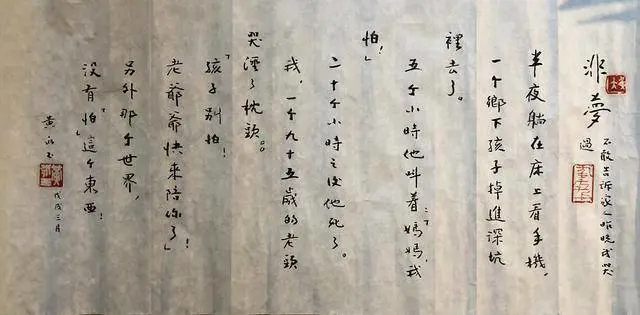 非夢
不敢告訴家人昨晚我哭
過
半夜躺在床上看手機,
一个鄉下孩子掉進深坑
裡去了。
五个小時他叫着:「媽媽,我
怕!」
二十个小時之後他死了。
我,一个九十五歲的老頭
哭溼了枕頭。
「孩子別怕!
老爺爺快來陪你了!」
另外那个世界,
沒有「怕」這个東西!
黄永玉
戊戌三月